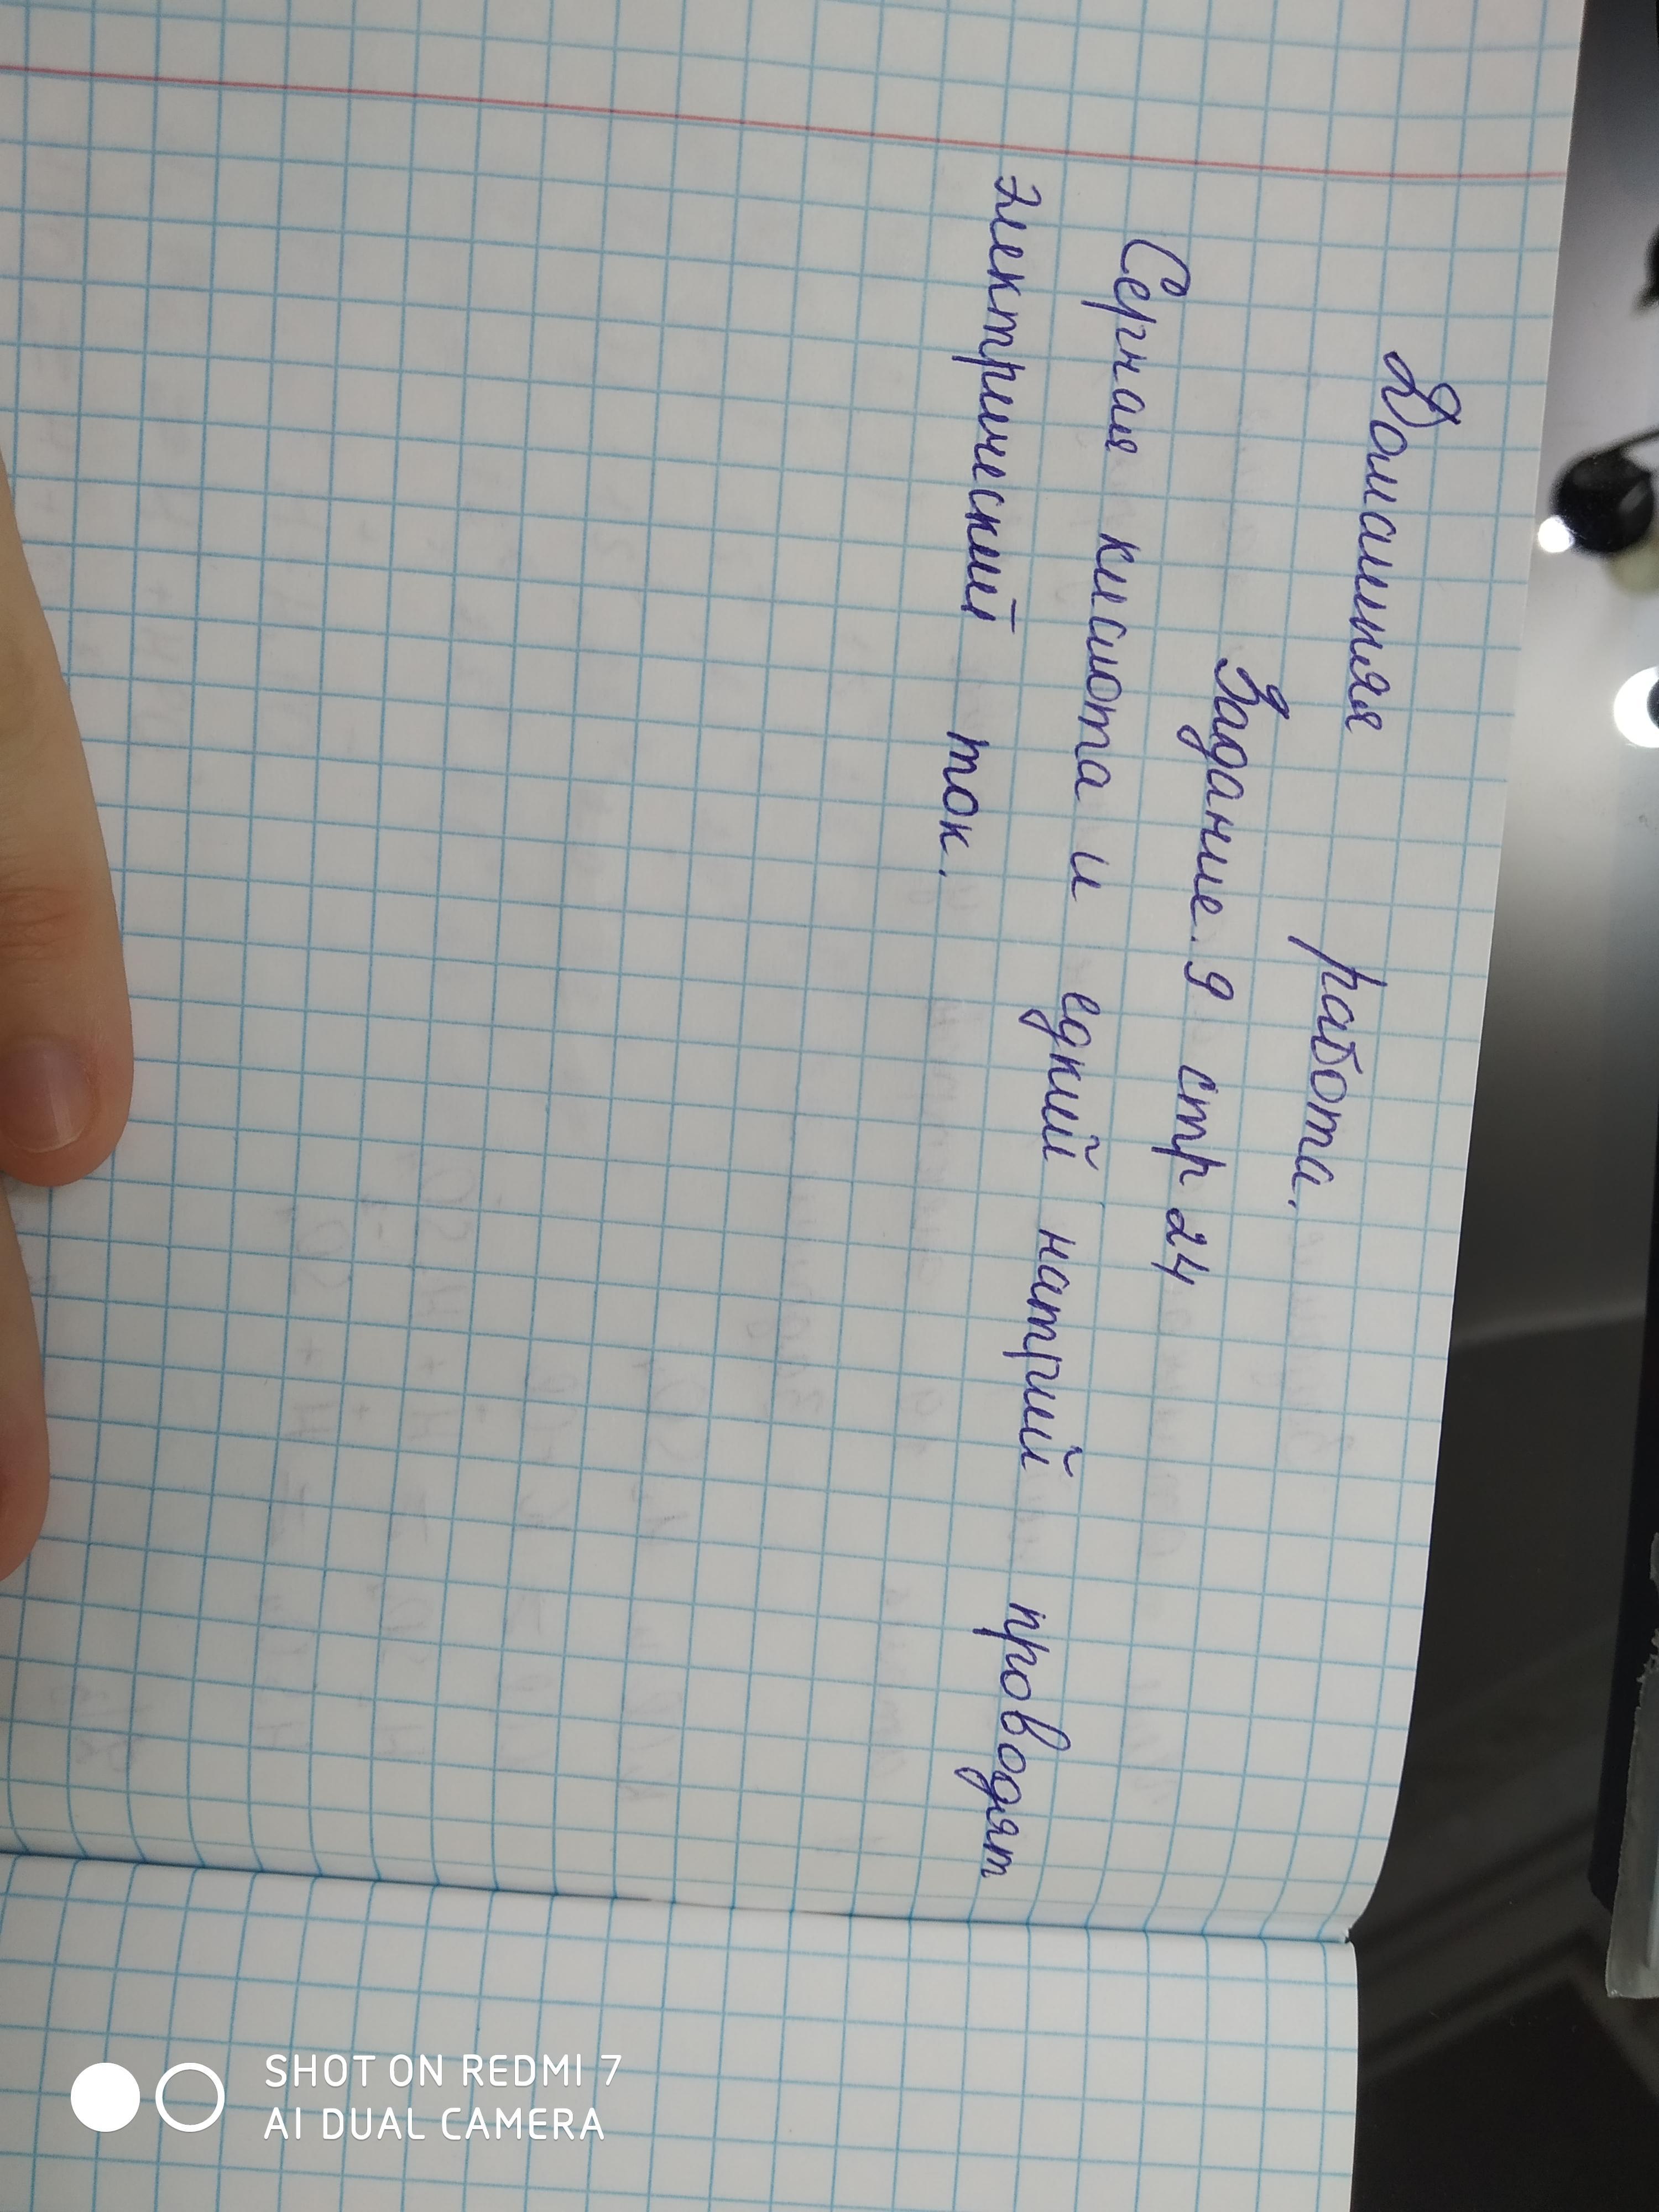 Домашняя работа.
Задание. 9 стр 24
Серная кислота и едкий натрий проводят
электрический ток.
SHOT ON REDMI 7
AI DUAL CAMERA